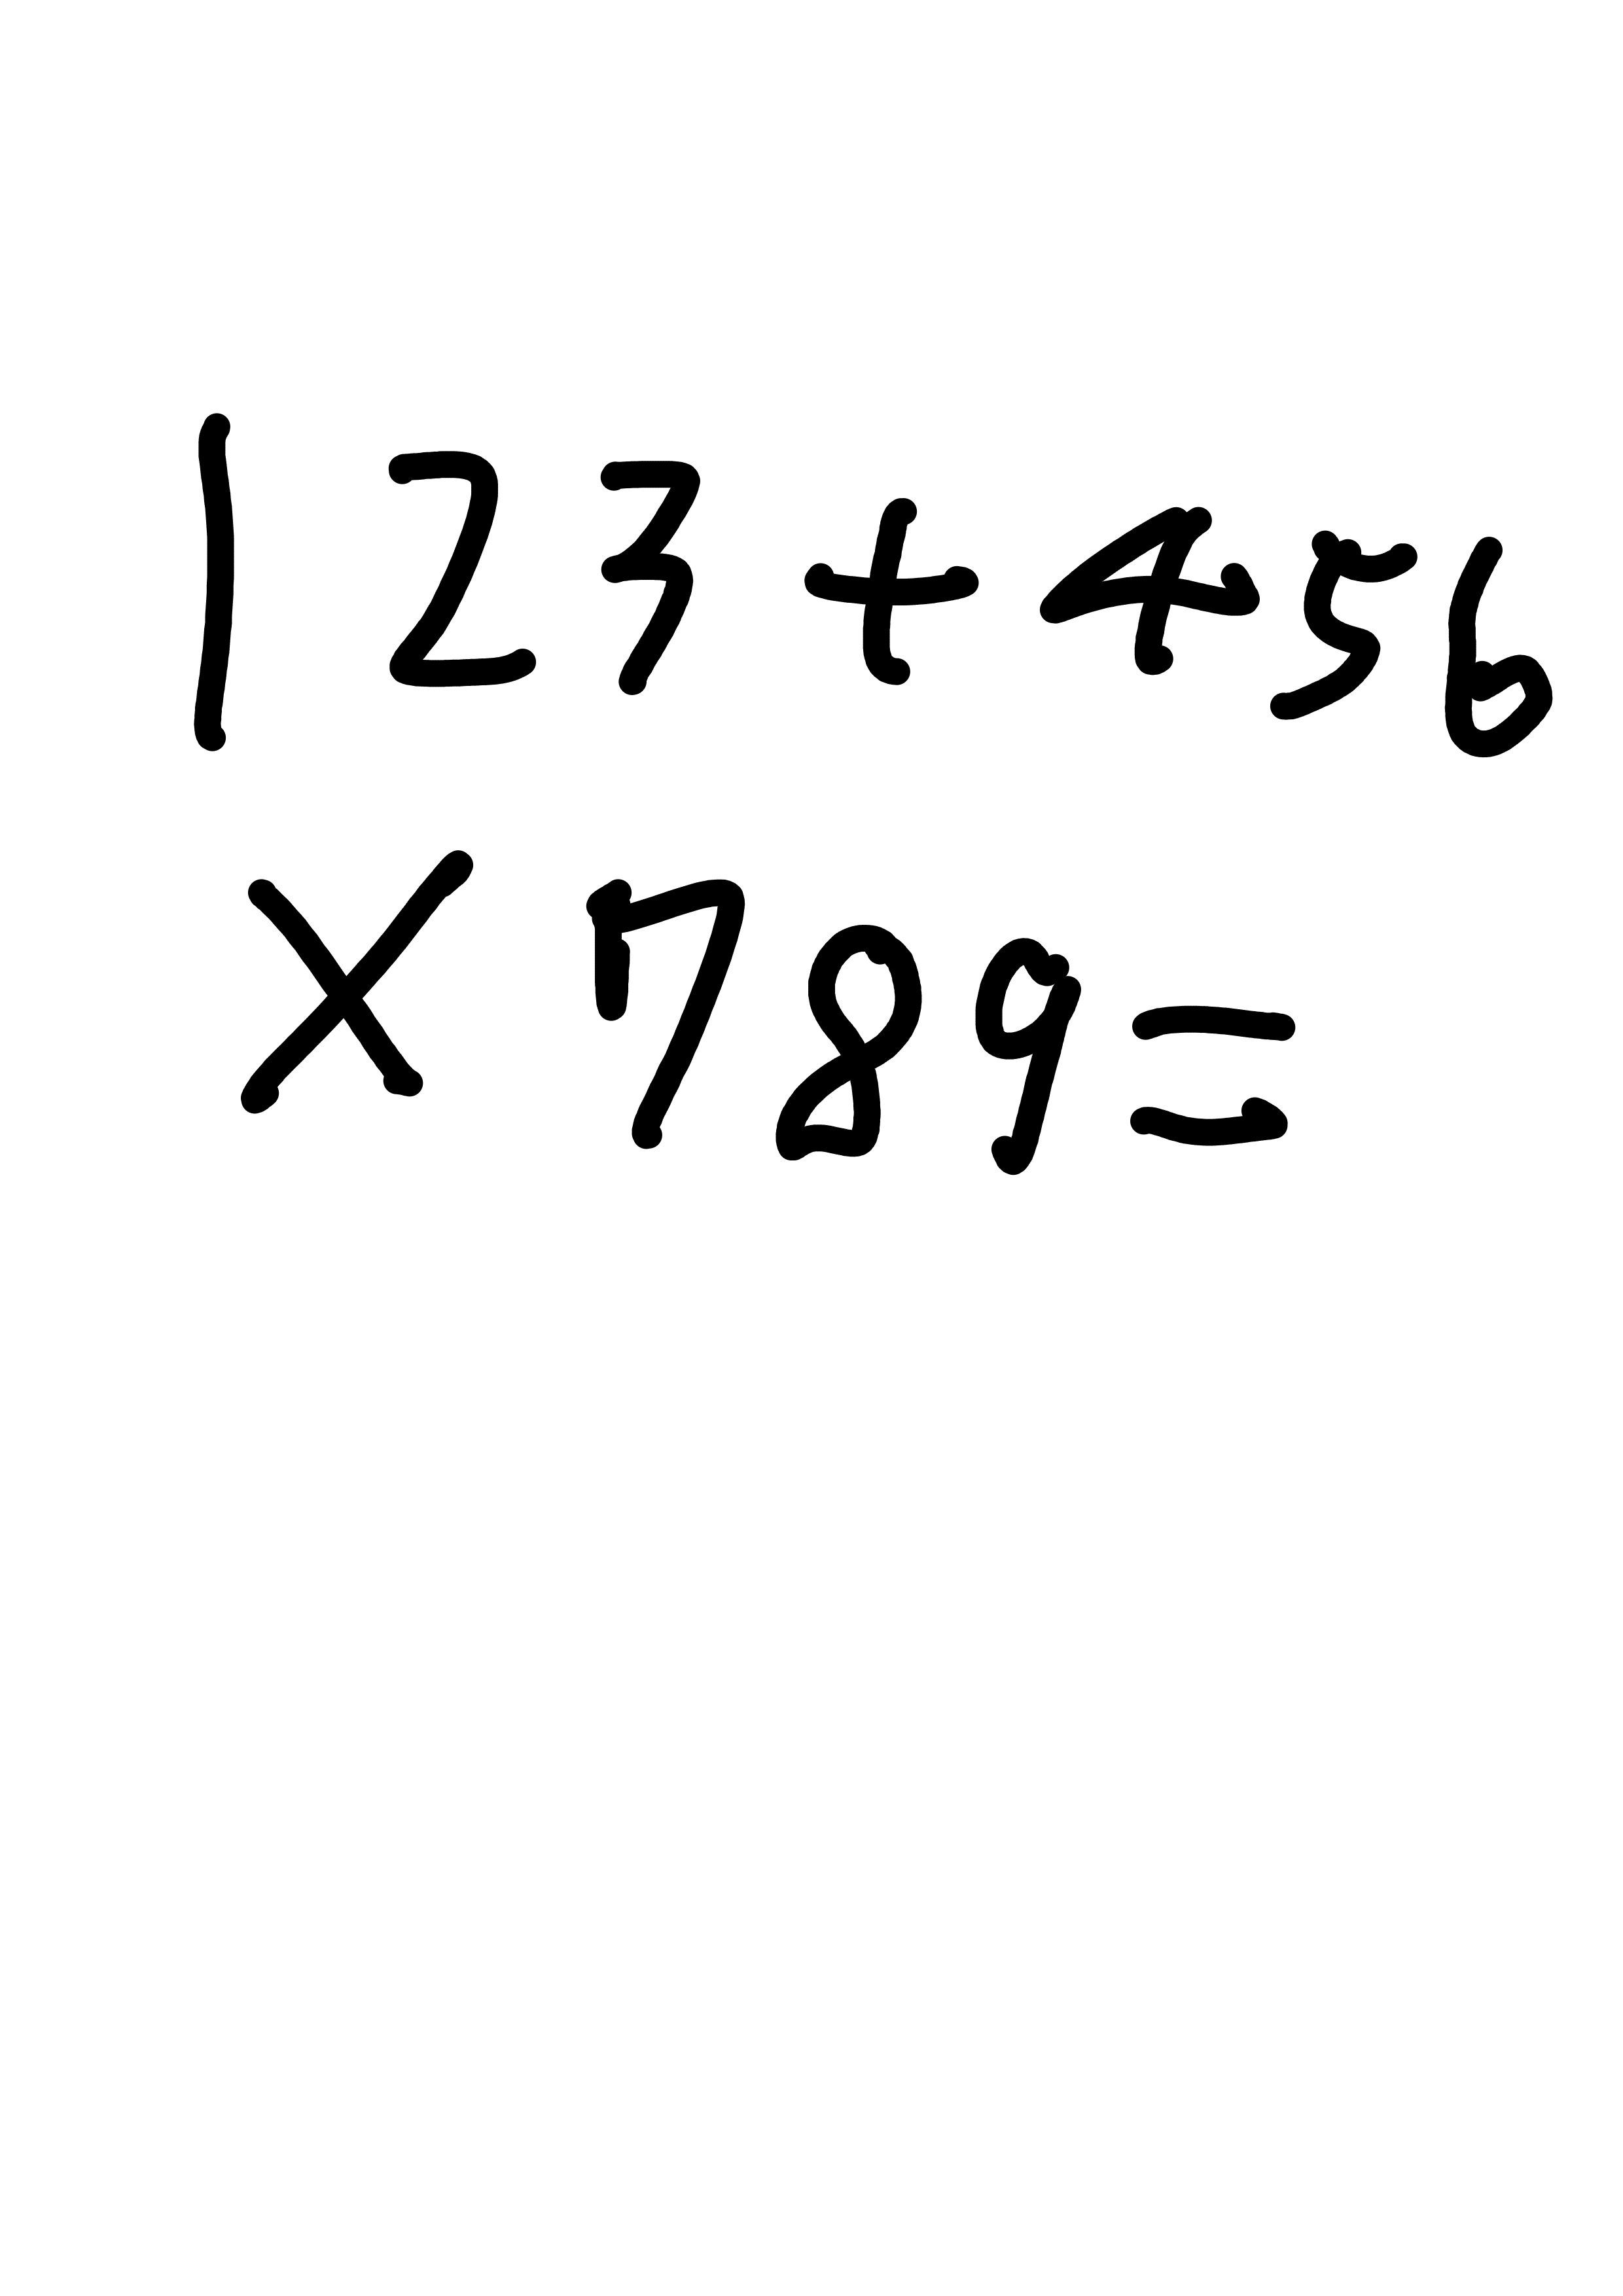 123+456
×789=